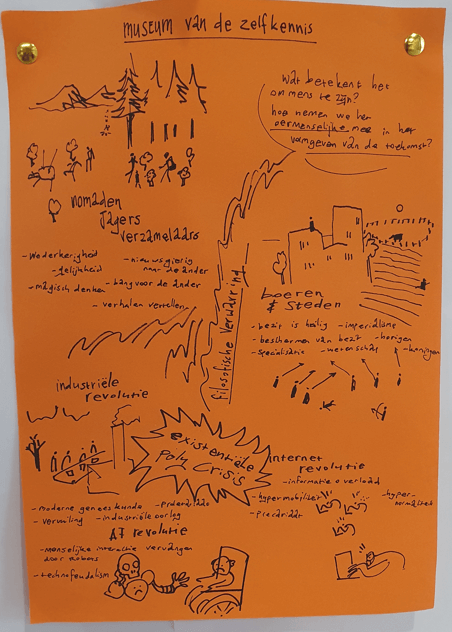 museum van de zelfkennis
Wat betekent het
om mens te zijn?
hoe nemen we het
oermenselijke mee in het
vormgeven van de toekomst?
nomaden
Jagers
verzamelaars
- Wederkerigheid
- gelijkheid
- magisch denken
- nieuwsgierig
naar de ander
- bang voor de ander
- verhalen vertellen
filosofische verwarring
boeren
& Steden
- bezit is heilig
- imperialisme
- beschermen van bezit
- horigen
- specialisatie
- wetenschap
- koningen
industriële
revolutie
existentiële
Poly Crisis
- moderne geneeskunde
- vervuiling
- industriële oorlog
internet
revolutie
- informatie overload
- hypermobiliteit
- precariaat
- hyper-
normaliteit
AI revolutie
- menselijke interactie vervangen
door robots
- technofeudalism